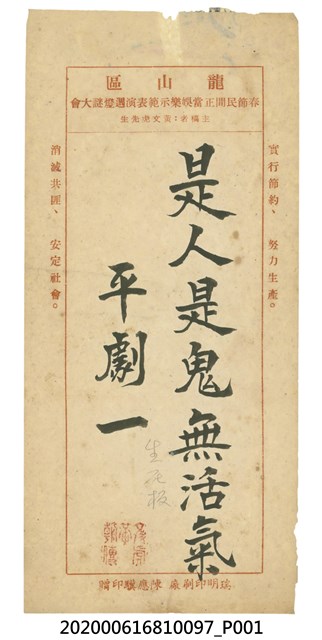 區山龍
會大謎燈遇演表範示樂娛當正間民節春
生先虎文黃：者稿主
實行節約、努力生產。
是人是鬼無活氣
平劇一
生死板
消滅共匪、安定社會。
贈印驥應陳 廠刷印明瑛
202000616810097_P001